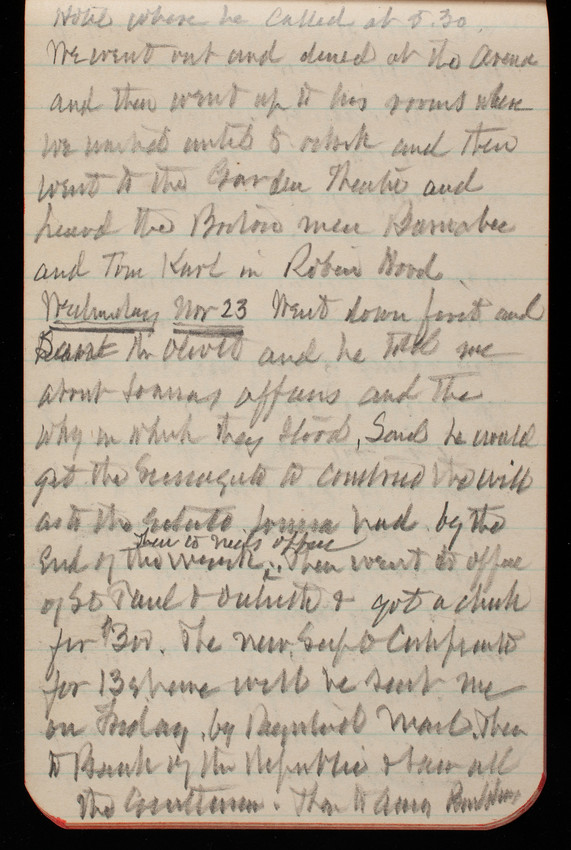 Hotel where he called at 5.30
We went out and dined at the
and then went up to his rooms where
we waited until 8 oclock and then
went to the Garden Theatre and
heard the Boston men Barnabee
and Tom Karl in Robin Hood
Wednesday Nov 23 Went down first and
Mr Olivet and he told me
about affairs and the
why in which they stood, Said he would
get the to construe the will
as to the had by the
Then to Neds office
End of the week. Then went to office
of St Paul & Duluth & got a check
for $300. The new Certificate
for 13 will be sent me
on Friday, by Registered Mail. Then
to Bank of the Republic & saw all
the Gentlemen. Then to